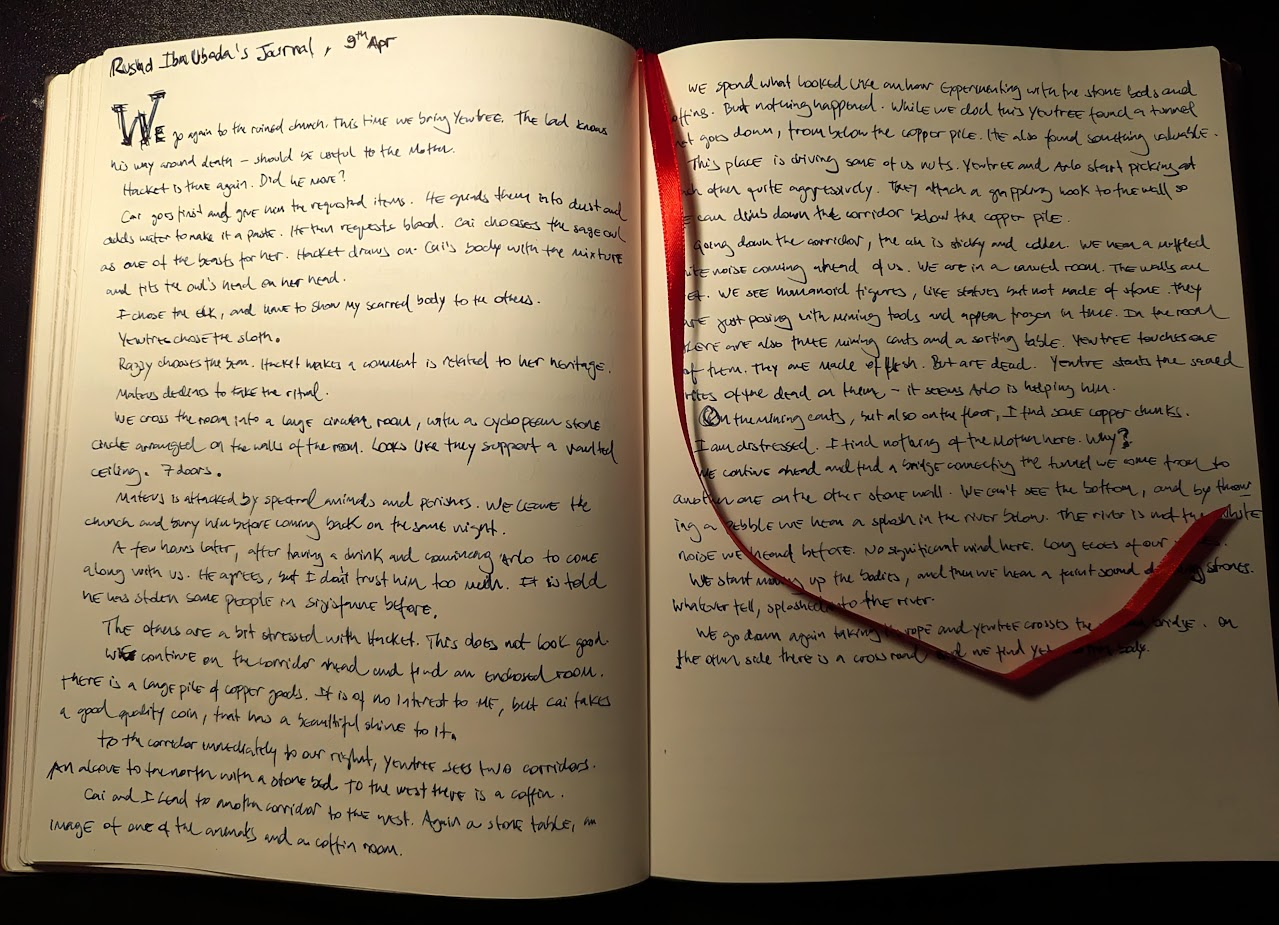 Rushd Ibn Ubada's Journal, 9th Apr
WE go again to the ruined church. This time we bring Yewtree. The lad knows
his way around death – should be useful to the Mother.
Hacket is there again. Did he move?
Cai goes first and give him the requested items. He grinds them into dust and
adds water to make it a paste. He then requests blood. Cai chooses the sage owl
as one of the beasts for her. Hacket draws on Cai's body with the mixture
and fits the owl's head on her head.
I chose the elk, and have to show my scarred body to the others.
Yewtree chose the sloth.
Razzy chooses the . Hacket makes a comment is related to her heritage.
Mateus declines to take the ritual.
We cross the room into a large circular room, with a cyclopean stone
circle arranged on the walls of the room. Looks like they support a vaulted
ceiling. 7 doors.
Mateus is attacked by spectral animals and perishes. We leave the
church and bury him before coming back on the same night.
A few hours later, after having a drink and convincing Arlo to come
along with us. He agrees, but I don't trust him too much. It is told
he has stolen some people in before.
The others are a bit stressed with Hacket. This does not look good.
We continue on the corridor ahead and find an enclosed room.
There is a large pile of copper goods. It is of no interest to me, but Cai takes
a good quality coin, that has a beautiful shine to it.
To the corridor immediately to our right, Yewtree sees two corridors.
An alcove to the north with a stone bed. To the west there is a coffin.
Cai and I lead to another corridor to the west. Again a stone table, an
image of one of the animals and a coffin room.
We spend what looked like an hour experimenting with the stone beds and
offins. But nothing happened. While we did this Yewtree found a tunnel
goes down, from below the copper pile. He also found something valuable.
This place is driving some of us nuts. Yewtree and Arlo start picking at
ch other quite aggressively. They attach a grappling hook to the wall so
can climb down the corridor below the copper pile.
Going down the corridor, the air is sticky and colder. We hear a muffled
ite noise coming ahead of us. We are in a carved room. The walls are
et. We see humanoid figures, like statues but not made of stone. They
are just posing with mining tools and appear frozen in time. In the room
here are also three mining carts and a sorting table. Yewtree touches one
of them. They are made of flesh. But are dead. Yewtree starts the sacred
rites of the dead on them – it seems Arlo is helping him.
On the mining carts, but also on the floor, I find some copper chunks.
I am distressed. I find nothing of the Mother here. Why?
We continue ahead and find a bridge connecting the tunnel we come from to
another one on the other stone wall. We can't see the bottom, and by throw
ing a pebble we hear a splash in the river below. The river is not the white
noise we heard before. No significant wind here. Long echoes of our
We start moving up the bodies, and then we hear a faint sound of stones.
Whatever fell, splashed into the river.
We go down again taking rope and Yewtree crosses the bridge. On
the other side there is a cross road, and we find body.